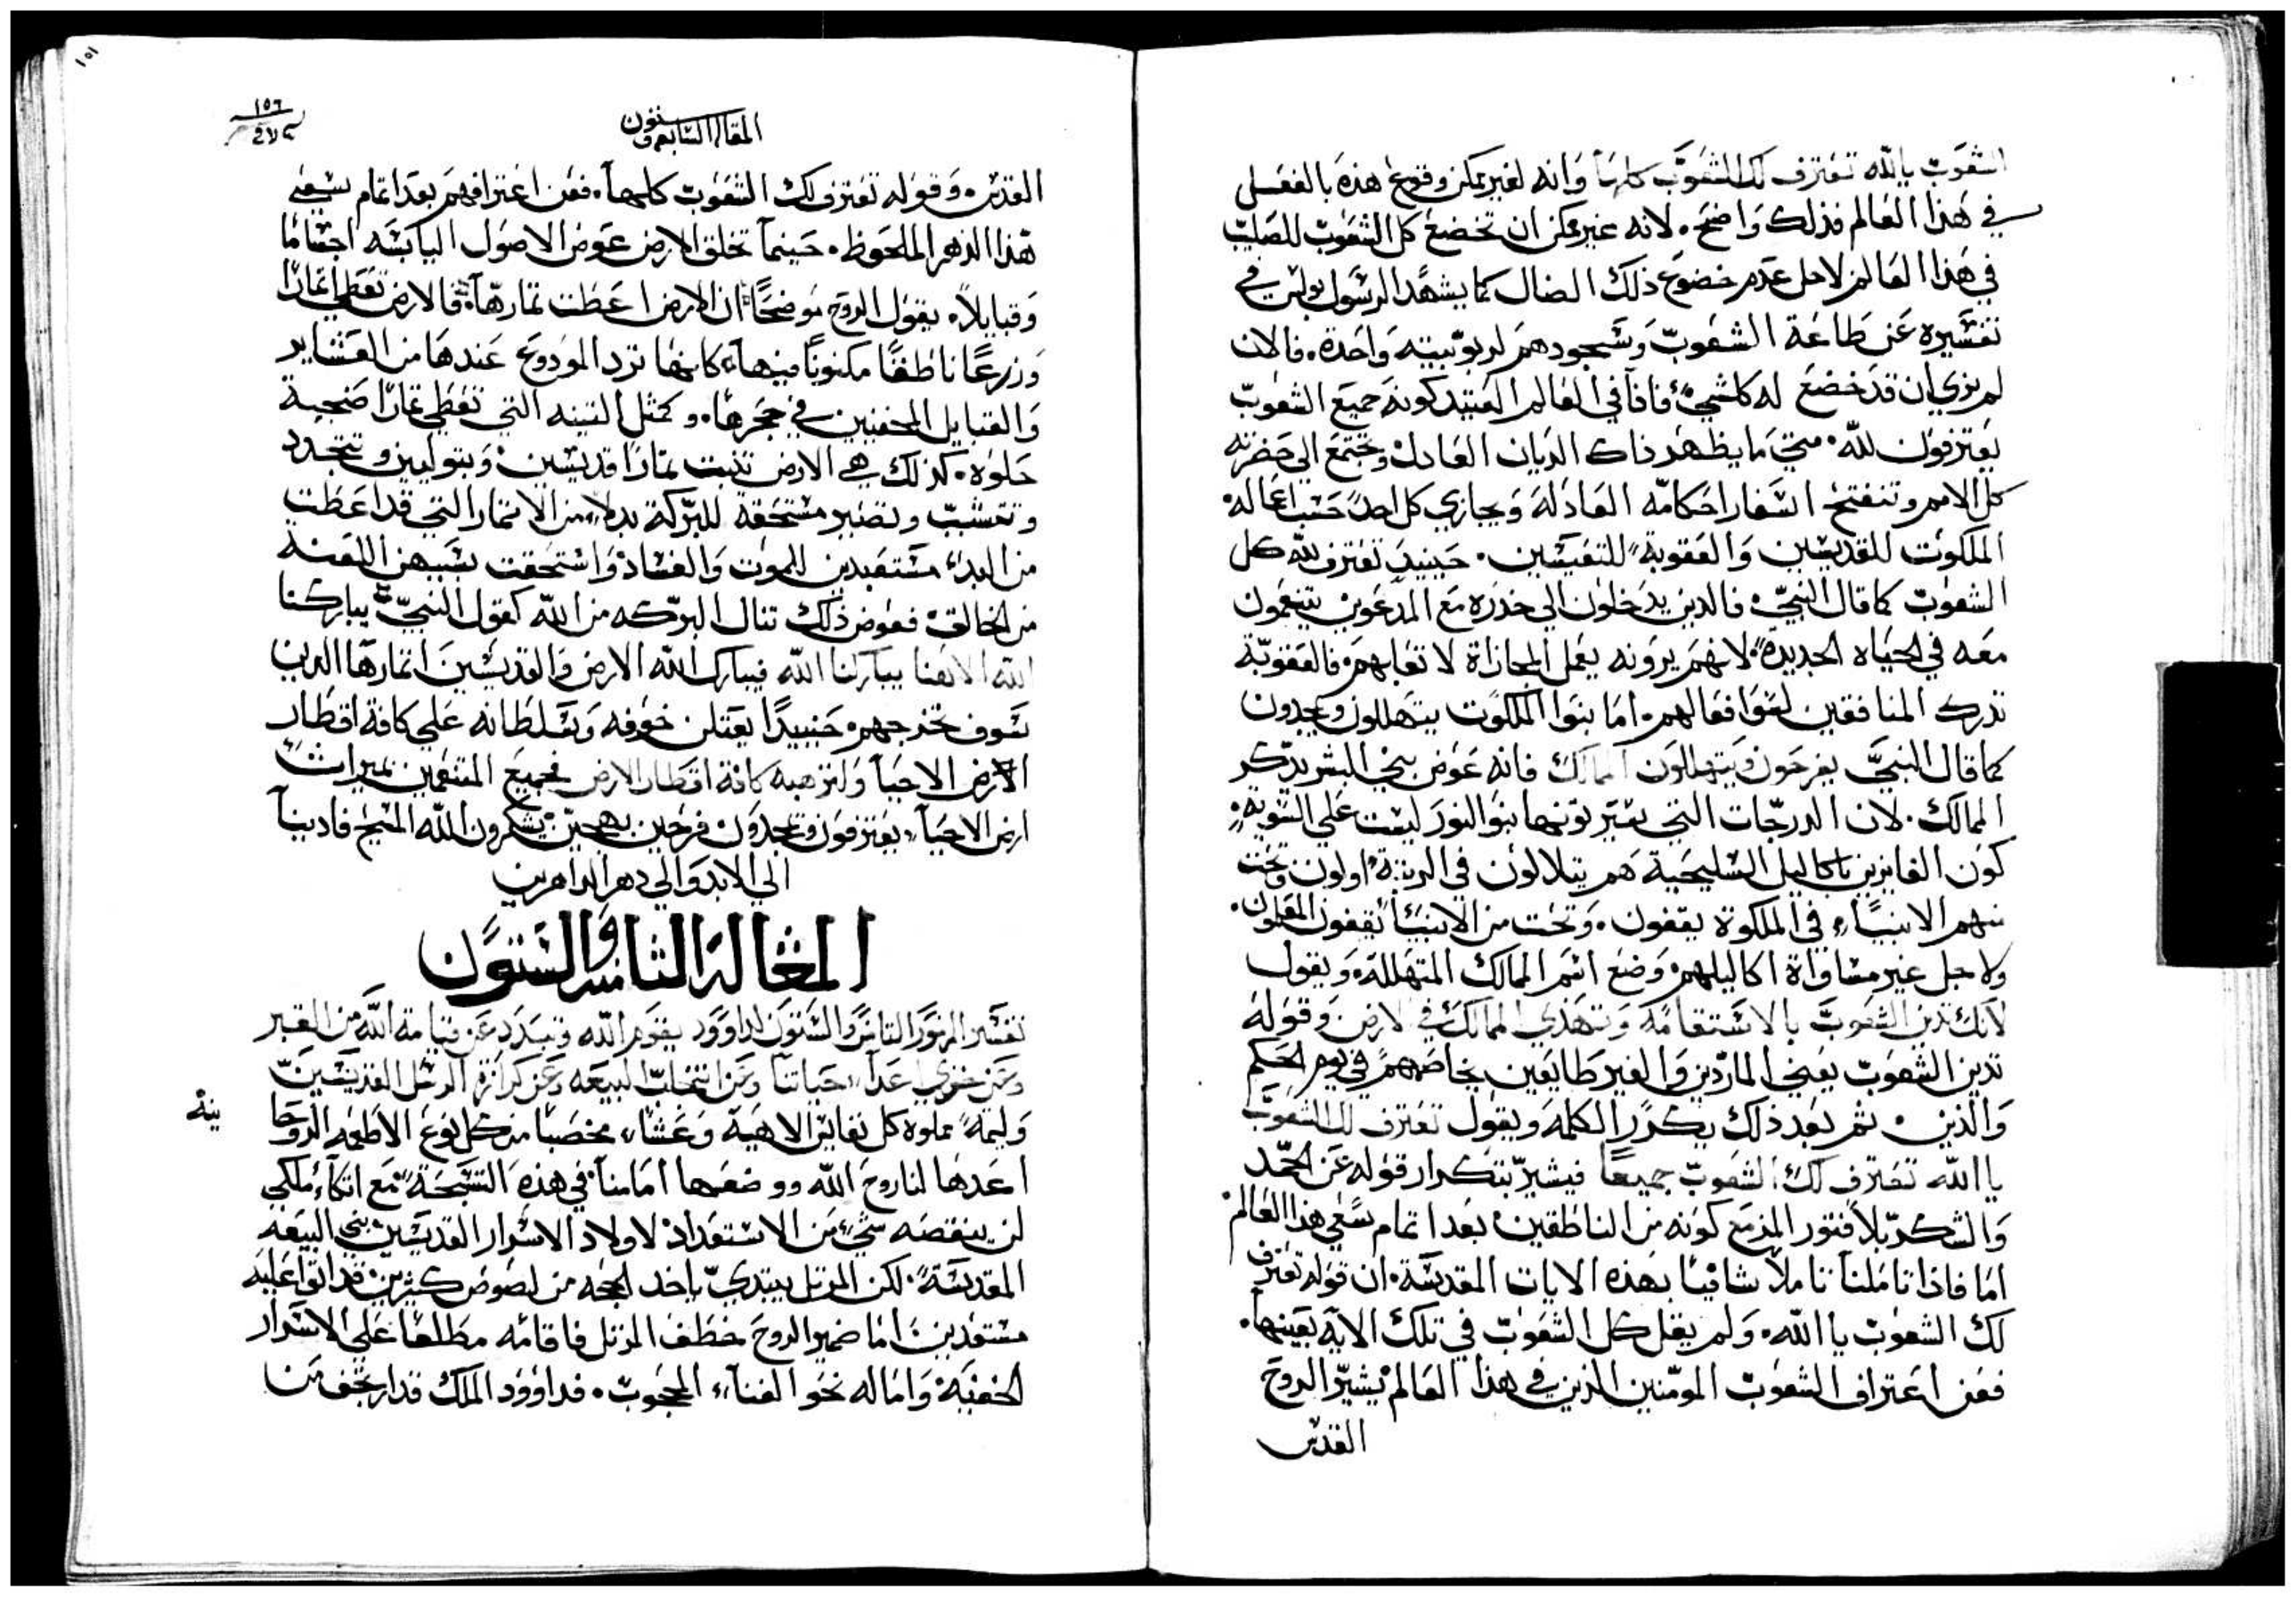 الشعوب يا الله تعترف لك الشعوب كلها وانه لغير ممكن وقوع هذه بالفعل
في هذا العالم فذلك واضح. لانه غير ممكن ان تخضع كل الشعوب للصليب
في هذا العالم لاجل عدم خضوع ذلك الضال كما يشهد الرسول بولس في
تفسيره عن طاعة الشعوب وسجودهم لربوبيته واحدة. فالان
لم نري ان قد خضع له كلشيء فاذا في العالم العتيد كونه جميع الشعوب
يعترفون لله. متي ما يظهر ذاك الديان العادل وتجتمع الي حضرته
كل الامم وتنفتح اسفار احكامه العادله ويجازي كل احد حسب اعماله
الملكوت للقديسين والعقوبة للتعيسين. حينيد تعترف لله كل
الشعوب كما قال النبي فالدين يدخلون الي خدره مع المدعوين يتنعمون
معه في الحياه الجديدة لانهم يرونه يعمل المجازاة لاتعابهم فالعقوبة
تدرك المنافقين لسو افعالهم. اما بنوا الملكوت يتهللون ويمجدون
كما قال النبي يفرحون ويتهللون الممالك فانه عوض بني البشر يذكر
الممالك. لان الدرجات التي بنوا النور ليست علي السويه
كون الفايزين باكاليل السليحية هم يتلالون في الرتبة اولون وتحت
منهم الانبياء في الملكوة يقفون. وتحت من الانبيا يقفون المعلمون.
ولاجل غير مساواة اكاليلهم وضع اسم الممالك المتهللة ويقول
لانك تدين الشعوب بالاستقامه وتهدي الممالك في الارض وقوله
تدين الشعوب يعني الماردين والغير طايعين يخاصمهم في يوم الحكم
والدين. ثم بعد ذلك يكرر الكلمه ويقول تعترف لك الشعوب
يا الله تعترف لك الشعوب جميعا فيشير بتكرار قوله عن الحمد
والشكر بلا فتور المزمع كونه من الناطقين بعد اتمام سعي هذا العالم
اما فاذا تاملنا تاملا شافيا بهذه الايات المقدسة. ان قوله تعترف
لك الشعوب يا الله. ولم يقل كل الشعوب في تلك الاية بعينها.
فعن اعتراف الشعوب المومنين الذين في هذا العالم يشير الروح
القدس
١٥١
١٥٦
المقاله السابعه وستون
القدس. وقوله تعترف لك الشعوب كلها. فعن اعترافهم بعد اتمام سعي
هذا الدهر الملحوظ. حينما تخلق الارض عوض الاصول اليابسه اجساما
وقبايلا. يقول الروح موضحا ان الارض اعطت ثمارها. فالارض تعطي اثمارا
وزرعا ناطقا مكنونا فيها كانها ترد المودوع عندها من العشاير
والقبايل المخفيين في حجرها. وكمثل التينه التي تعطي ثمارا ضجية
حلوه. كذلك هي الارض تنبت ثمارا قديسين وبتوليين وتتجدد
وتعشب وتصير مستحقة للبركة بدلا من الاثمار التي قد اعطت
من البدء مستعبدين للموت والفساد واستحقت بسببهن اللعنة
من الخالق فعوض ذلك تنال البركه من الله كقول النبي يباركنا
الله الاهنا يباركنا الله فيبارك الله الارض والقديسين اثمارها الدين
سوف تخرجهم حنييدا يعتلن خوفه وتسلطانه علي كافة اقطار
الارض الاحيا ولترهبه كافة اقطار الارض فجميع المتنعمين بميراث
ارض الاحيا. يعترفون ويمجدون فرحين بهجين يشكرون الله المسيح فادينا
الي الابد والي دهر الداهرين
المقاله الثامنه والستون
تفسير المزمور الثامن والستون لداوود يقوم الله وتتبدد عن قيامة الله من القبر
وعن خزي اعدا حياتنا وعن انتخاب البيعه وعن كرازة الرسل القديسين
وليمة مملوة كل نفايس الاهية وعشاء مخصبا من كل نوع الاطعمه الروحا
نية
اعدها لنا روح الله ووضعها امامنا في هذه التسبحة مع اتكاء ملكي
لن ينقصه شيء من الاستعداد لاولاد الاسرار القديسين بني البيعه
المقدسة. لكن المرتل يبتدي ياخد لهجه من لصوص كثيرين قد اتوا عليه
مستعدين اما ضمير الروح خطف المرتل فاقامه مطلعا علي الاسرار
الخفية واماله نحو الغناء المحجوب. فداوود الملك قد ارتجف من